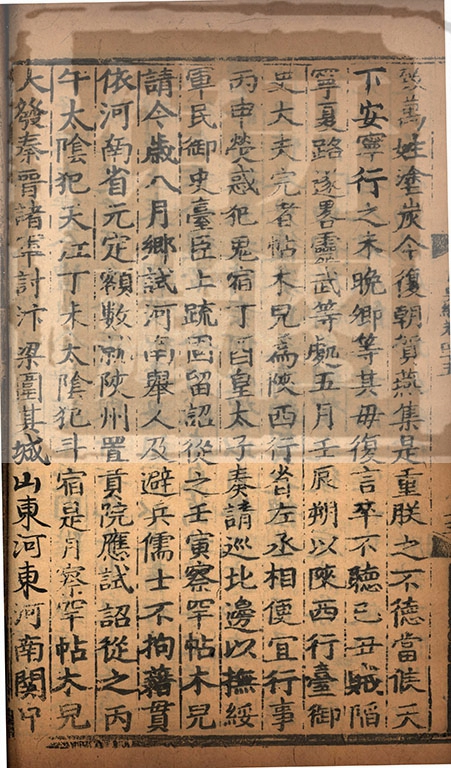 致萬姓塗炭今復朝賀燕集是重朕之不德當俟天
下安寧行之未晚卿等其毋復言卒不聽己丑賊陷
寧夏路遂畧靈武等處五月壬辰朔以陝西行臺御
史大夫完者帖木兒爲陝西行省左丞相便宜行事
丙申熒惑犯鬼宿丁酉皇太子奏請巡北邊以撫綏
軍民御史臺臣上疏固留詔從之壬寅察罕帖木兒
請今歲八月鄉試河南舉人及避兵儒士不拘藉貫
依河南省元定額數就陝州置貢院應試詔從之丙
午太陰犯天江丁未太陰犯斗宿是月察罕帖木兒
大發秦晉諸軍討汴梁圍其城山東河東河南關中